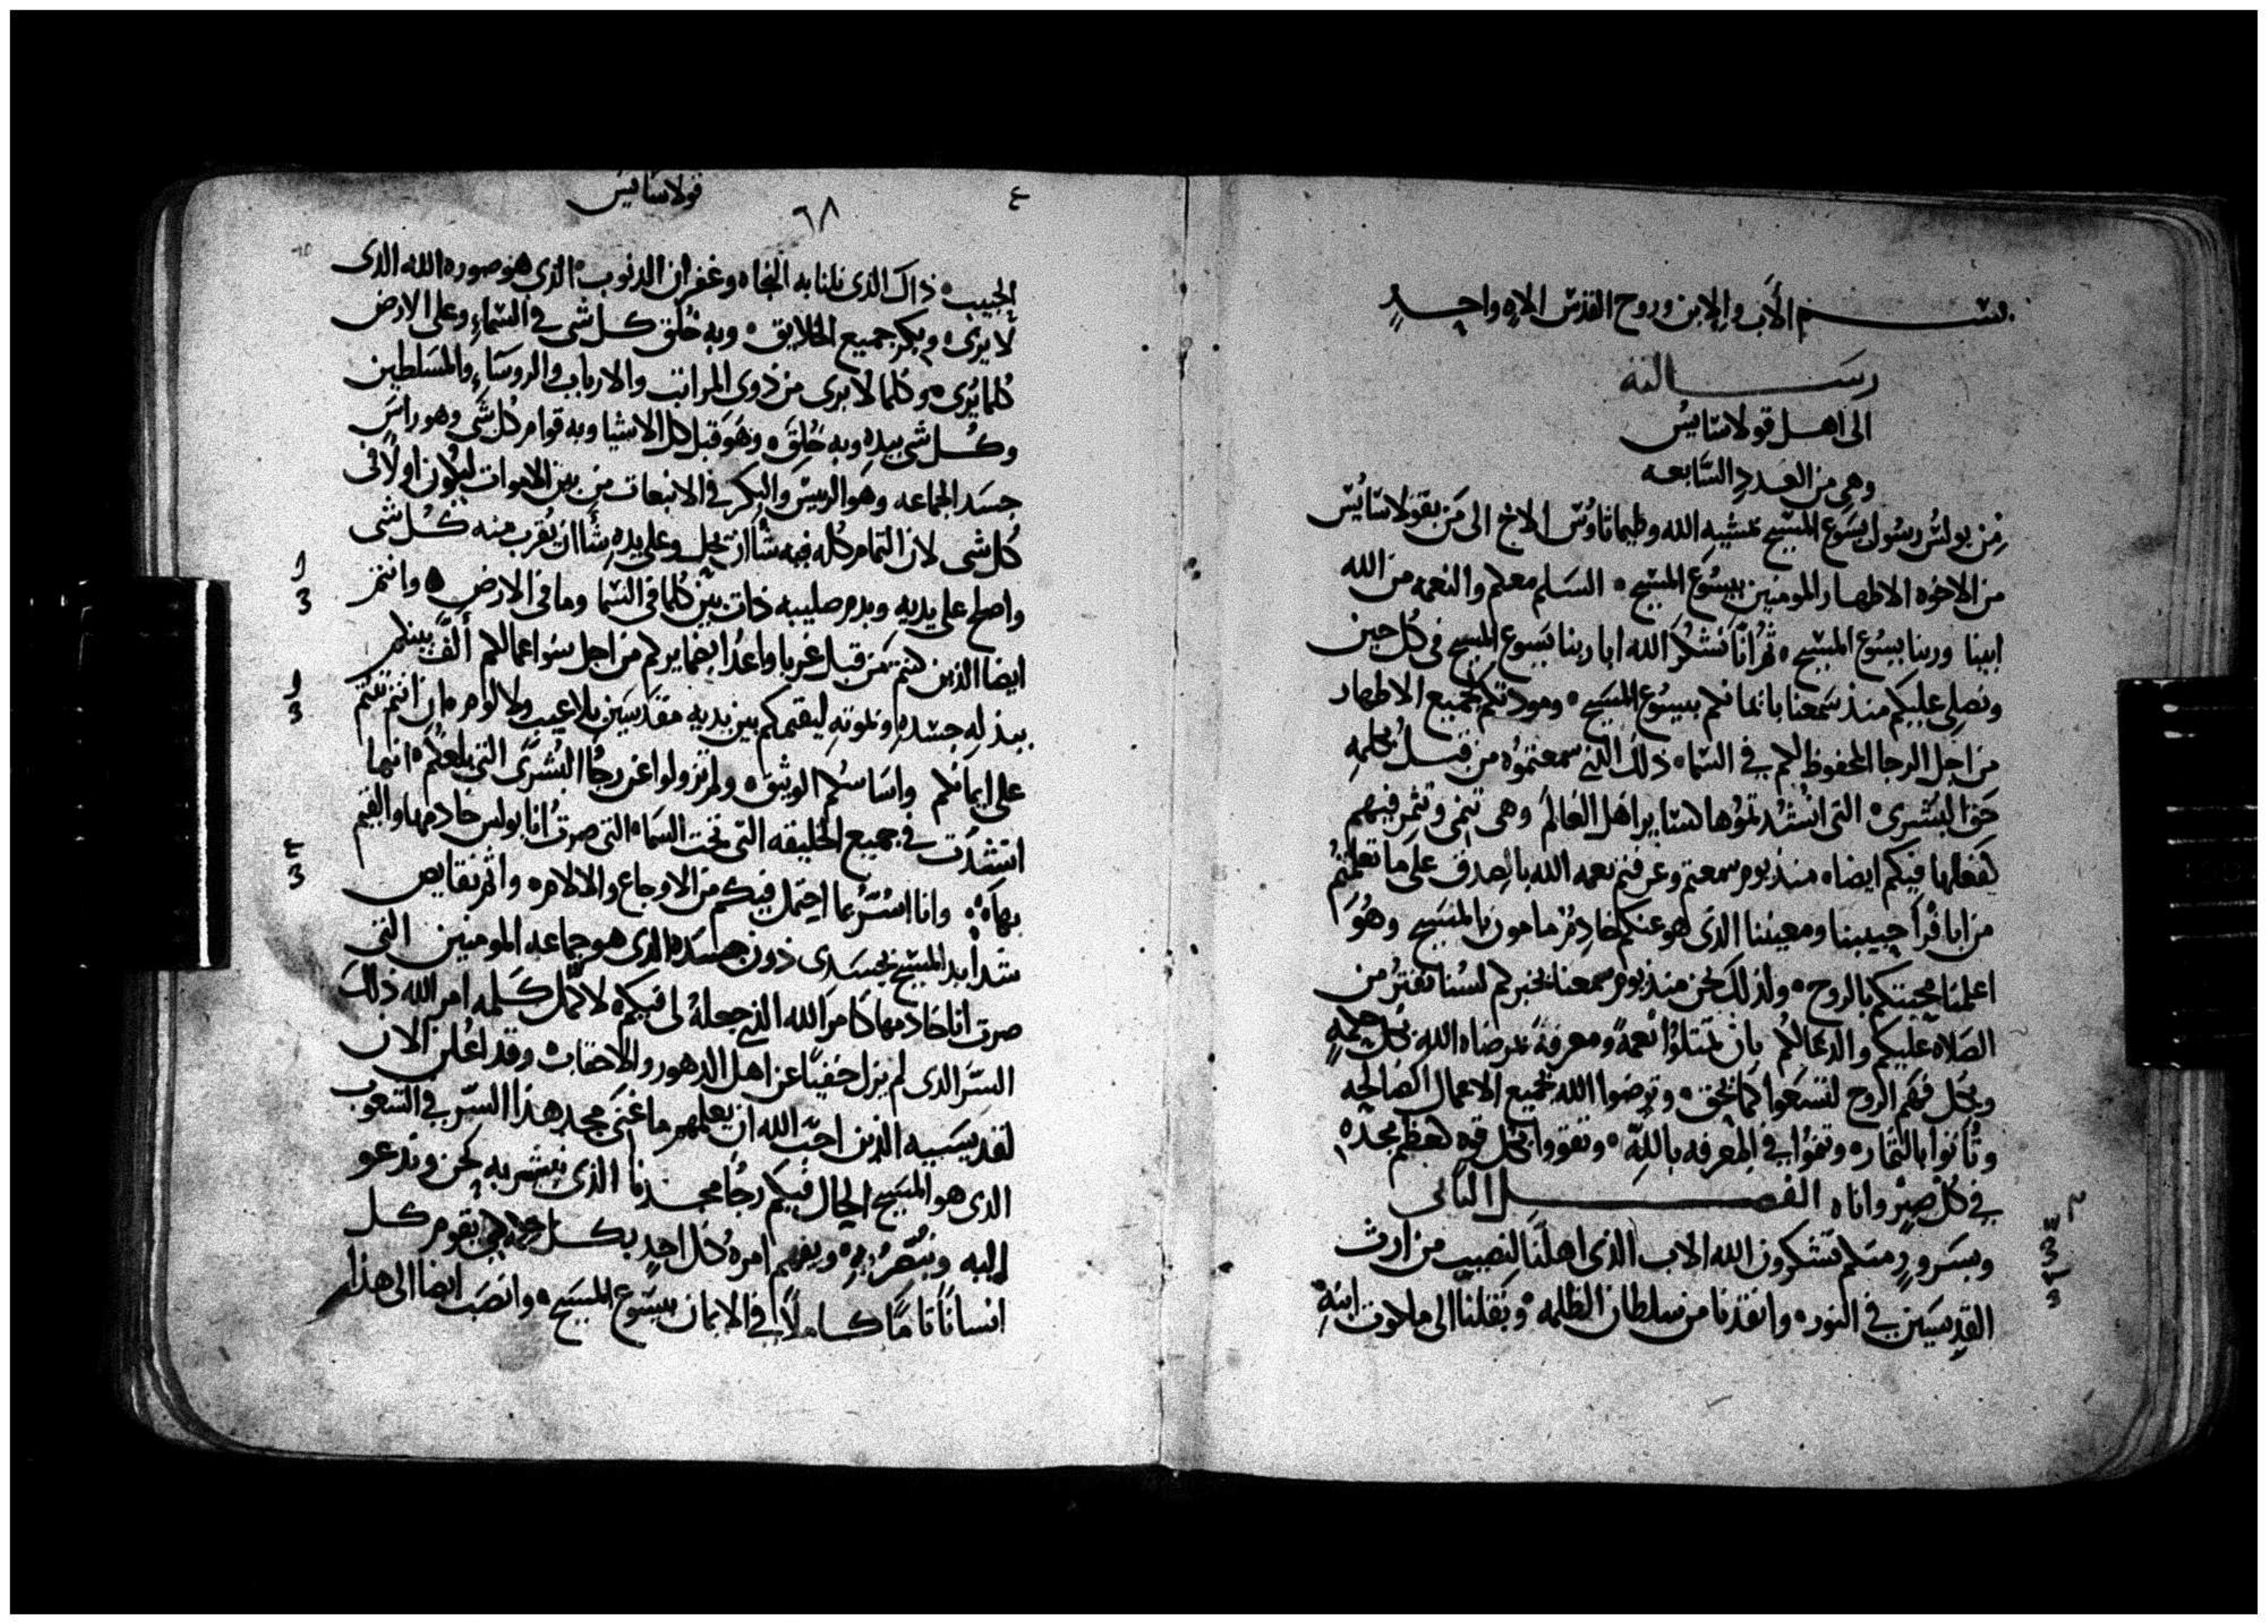 بسم الأب والابن وروح القدس الاه واحد
رسالته
الى اهل قولاسايس
وهى من العدد السابعه
من بولس رسول يسوع المسيح بمشيه الله وطيماتاوس الاخ الى من بقولاسايس
من الاخوه الاطهار المومنين بيسوع المسيح ٥ السلم معكم والنعمه من الله
ابينا وربنا يسوع المسيح ٥ ثم انا نشكر الله ابا ربنا يسوع المسيح فى كل حين
ونصلى عليكم منذ سمعنا بايمانكم بيسوع المسيح ٥ ومودتكم لجميع الاطهار
من اجل الرجا المحفوظ لكم في السما ٥ ذلك الذي سمعتموه من قبل بكلمه
حق البشرى ٥ التى انشدتموها لسايراهل العالم وهى تنمى وتثمر فيهم
كفعلها فيكم ايضا ٥ منذ يوم سمعتم وعرفتم نعمه الله بالصدق على ما تعلمتم
من ابافرا حبيبنا ومعيننا الذى هو عنكم خادم مامون بالمسيح وهو
اعلمنا محبتكم بالروح ٥ ولذلك نحن منذ يوم سمعنا بخبركم لسنا نفتر من
الصلاه عليكم والدعا لكم بان تمتلوا نعمة ومعرفة بمرضاه الله بكل حكمه
وبكل فهم الروح لتسعوا كما يحق ٥ وترضوا الله بجميع الاعمال الصالحه
وتاتوا بالثمار ٥ وتنموا في المعرفه بالله ٥ وتقووا بكل قوه لعظم مجده
في كل صبر واناه الفصل الثانى
وبسرور منكم تشكرون الله الاب الذى اهلنا لنصيب من ارث
القديسين في النور ٥ وانقذنا من سلطان الظلمه ٥ ونقلنا الى ملكوت ابنه
قولاسايس
٦٨
الحبيب ٥ ذاك الذى نلنا به النجاه وغفران الدنوب ٥ الذى هو صوره الله الذى
لا يرى ٥ وبكر جميع الخلايق ٥ وبه خلق كل شى في السماء وعلى الارض
كلما يرى ٥ وكلما لا يرى من ذوى المراتب والارباب والروساء والمسلطين
وكل شى بيده وبه خلق ٥ وهو قبل كل الاشيا وبه قوام كل شى وهو راس
جسد الجماعه وهو الريس والبكر في الانبعاث من بين الاموات ليكون اولا فى
كل شى لان التمام كله فيه شأ ان يحل وعلى يده شأ ان يقرب منه كل شى
واصلح على يديه وبدم صليبه ذات بين كلما في السما وما في الارض ٥ وانتم
ايضا الذين كنتم من قبل غربا واعدا بضمايركم من اجل سو اعمالكم ألف بينكم
ببذله جسده وبموته ليقيمكم بين يديه مقدسين بلا عيب ولا لوم ٥ ان انتم ثبتم
على ايمانكم واساسكم الوثيق ٥ ولم تزولوا عن رجا البشرى التى بلغتكم ٥ انها
انتشدت في جميع الخليقه التى تحت السما ٥ التى صرت انا بولس خادمها والقيم
بها ٥ وانا اسر بما احتمل فيكم من الاوجاع والالام ٥ واثم نقايص
شدايد المسيح بجسدى دون جسده الذى هو جماعه المومنين التى
صرت انا خادمها كامر الله الذي جعله لى فيكم ٥ لاكمل كلمه امر الله ذلك
السر الذى لم يزل خفيا عن اهل الدهور والاحقاب ٥ وقد اعلن الان
لقديسيه الذين احب الله ان يعلمهم ما غنى مجد هذا السر في الشعوب
الذى هو المسيح الحال فيكم رجا مجدنا الذى نبشر به نحن وندعو
اليه ونبصر به ويفهم امره كل احد بكل حكمه لكى يقوم كل
انسانا تاما كاملا في الايمان بيسوع المسيح ٥ وانصب ايضا الى هذا